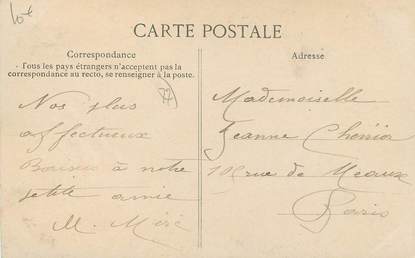 10€
CARTE POSTALE
Correspondance
Tous les pays étrangers n'acceptent pas la
correspondance au recto, se renseigner à la poste.
Nos plus
affectueux
Baisers à notre
petite amie
M.
Adresse
Mademoiselle
Jeanne
rue de Meaux
Paris